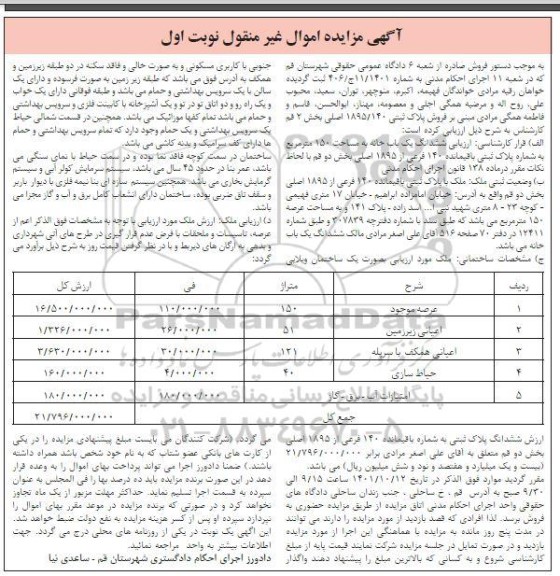 آگهی مزایده اموال غیر منقول نوبت اول
به موجب دستور فروش صادره از شعبه ۶ دادگاه عمومی حقوقی شهرستان قم
که در شعبه ۱۱ اجرای احکام مدنی به شماره ۴۰۶/۱۱ج/۱۴۰۱ ثبت گردیده
خواهان رقیه مرادی خواندگان فهیمه، اکبرم، منوچهر، توران، سعید، محبوب
علی، روح اله و مرضیه همگی اجلی و معصومه، مهناز، ابوالحسن، قاسم و
فاطمه همگی مرادی مبنی بر فروش پلاک ثبتی ۱۸۹۵/۱۴۰ اصلی بخش ۲ قم
کارشناس به شرح ذیل ارزیابی کرده است:
الف) قرار کارشناسی: ارزیابی ششدانگ یک باب خانه به مساحت ۱۵۰ مترمربع
به شماره پلاک ثبتی باقیمانده ۱۴۰ فرعی از ۱۸۹۵ اصلی بخش دو قم با لحاظ
نکات مقرر درماده ۱۳۸ قانون اجرای احکام مدنی
ب) وضعیت ثبتی ملک: ملک با پلاک ثبتی باقیمانده ۱۴۰ فرعی از ۱۸۹۵ اصلی
بخش دو قم واقع به آدرس: خیابان امامزاده ابراهیم - خیابان ۱۷ متری فهیمی
- کوچه ۲۳ - ۸ متری شهید نبی ا... اسد زاده - پلاک ۱۴۱ و به مساحت عرصه
۱۵۰ مترمربع می باشد که طبق سند با شماره دفترچه ۳۰۷۸۳۹ و طبق شماره
۱۲۴۱۱ در دفتر ۷۰ صفحه ۵۱۶ آقای علی اصغر مرادی مالک ششدانگ یک باب
خانه می باشد.
ج) مشخصات ساختمانی: ملک مورد ارزیابی بصورت یک ساختمان ویلایی
جنوبی با کاربری مسکونی و به صورت خالی و فاقد سکنه در دو طبقه زیرزمین و
همکف به آدرس فوق می باشد که طبقه زیر زمین به صورت فرسوده و دارای یک
سالن با یک سرویس بهداشتی و حمام می باشد و طبقه فوقانی دارای یک خواب
و یک راه رو و دو اتاق تو در تو و یک آشپزخانه با کابینت فلزی و سرویس بهداشتی
و حمام می باشد تمام کفها موزائیک می باشد. همچنین در قسمت شمالی حیاط
یک سرویس بهداشتی و یک حمام وجود دارد که تمام سرویس بهداشتی و حمام
ها دارای کف سرامیک و بدنه کاشی می باشد.
ساختمان در سمت کوچه فاقد نما بوده و در سمت حیاط با نمای سنگی می
باشد، عمر بنا در حدود ۴۵ سال می باشد. سیستم سرمایش کولر آبی و سیستم
گرمایش بخاری می باشد. همچنین سیستم سازه ای بنا نیمه فلزی با دیوار باربر
و سقف تاق ضربی بوده. ساختمان دارای انشعاب کامل برق و آب و گاز مجزا می
باشد.
د) ارزیابی ملک: ارزش ملک مورد ارزیابی با توجه به مشخصات فوق الذکر اعم از
عرصه، تاسیسات و ملحقات با فرض عدم قرار گیری در طرح های آتی شهرداری
و بدهی به ارگان های ذیربط و با در نظر گرفتن قیمت روز به شرح ذیل برآورد می
گردد:
ردیف شرح متراژ فی ارزش کل
۱ عرصه موجود ۱۵۰ ۱۱۰/۰۰۰/۰۰۰ ۱۶/۵۰۰/۰۰۰/۰۰۰
۲ اعیانی زیرزمین ۵۱ ۲۶/۰۰۰/۰۰۰ ۱/۳۲۶/۰۰۰/۰۰۰
۳ اعیانی همکف با سرپله ۱۲۱ ۳۰/۰۰۰/۰۰۰ ۳/۶۳۰/۰۰۰/۰۰۰
۴ حیاط سازی ۴۰ ۴/۰۰۰/۰۰۰ ۱۶۰/۰۰۰/۰۰۰
۵ امتیازات آب-برق-گاز ۱۸۰/۰۰۰/۰۰۰ ۱۸۰/۰۰۰/۰۰۰
جمع کل ۲۱/۷۹۶/۰۰۰/۰۰۰
ارزش ششدانگ پلاک ثبتی به شماره باقیمانده ۱۴۰ فرعی از ۱۸۹۵ اصلی
بخش دو قم متعلق به آقای علی اصغر مرادی برابر ۲۱/۷۹۶/۰۰۰/۰۰۰
(بیست و یک میلیارد و هفتصد و نود و شش میلیون ریال) می باشد.
مقرر گردید موارد فوق الذکر در تاریخ ۱۴۰۱/۱۰/۱۲ ساعت ۹/۱۵ الی
۹/۳۰ صبح به آدرس قم ، خ ساحلی ، جنب زندان ساحلی دادگاه های
حقوقی واحد اجرای احکام مدنی اتاق مزایده از طریق مزایده حضوری به
فروش برسد. لذا افرادی که قصد بازدید از مورد مزایده را دارند می توانند
در مدت پنج روز مانده به مزایده با هماهنگی این اجرا از مورد مزایده
بازدید و در صورت تمایل در جلسه مزایده شرکت نمایند قیمت پایه از مبلغ
کارشناسی شروع و به کسانی که بالاترین مبلغ را پیشنهاد دهند واگذار
می گردد. (شرکت کنندگان می بایست مبلغ پیشنهادی مزایده را در یکی
از کارت های بانکی عضو شتاب که به نام خود شخص باشد همراه داشته
باشند.) ضمنا دادورز اجرا می تواند پرداخت بهای اموال را به وعده قرار
دهد در این صورت برنده مزایده باید ده درصد بها را فی المجلس به عنوان
سپرده به قسمت اجرا تسلیم نماید. حداکثر مهلت مزبور از یک ماه تجاوز
نخواهد کرد و در صورتی که برنده مزایده در موعد مقرر بهای اموال را
نپردازد سپرده او پس از کسر هزینه مزایده به نفع دولت ضبط خواهد شد.
این آگهی یک نوبت در یکی از روزنامه های محلی درج می گردد. جهت
اطلاعات بیشتر به واحد مراجعه نمائید.
دادورز اجرای احکام دادگستری شهرستان قم - ساعدی نیا
ParsNamadData
پایگاه اطلاع رسانی مناقصه و مزایده
۰۲۱-۸۸۳۴۹۶۷۰-۵